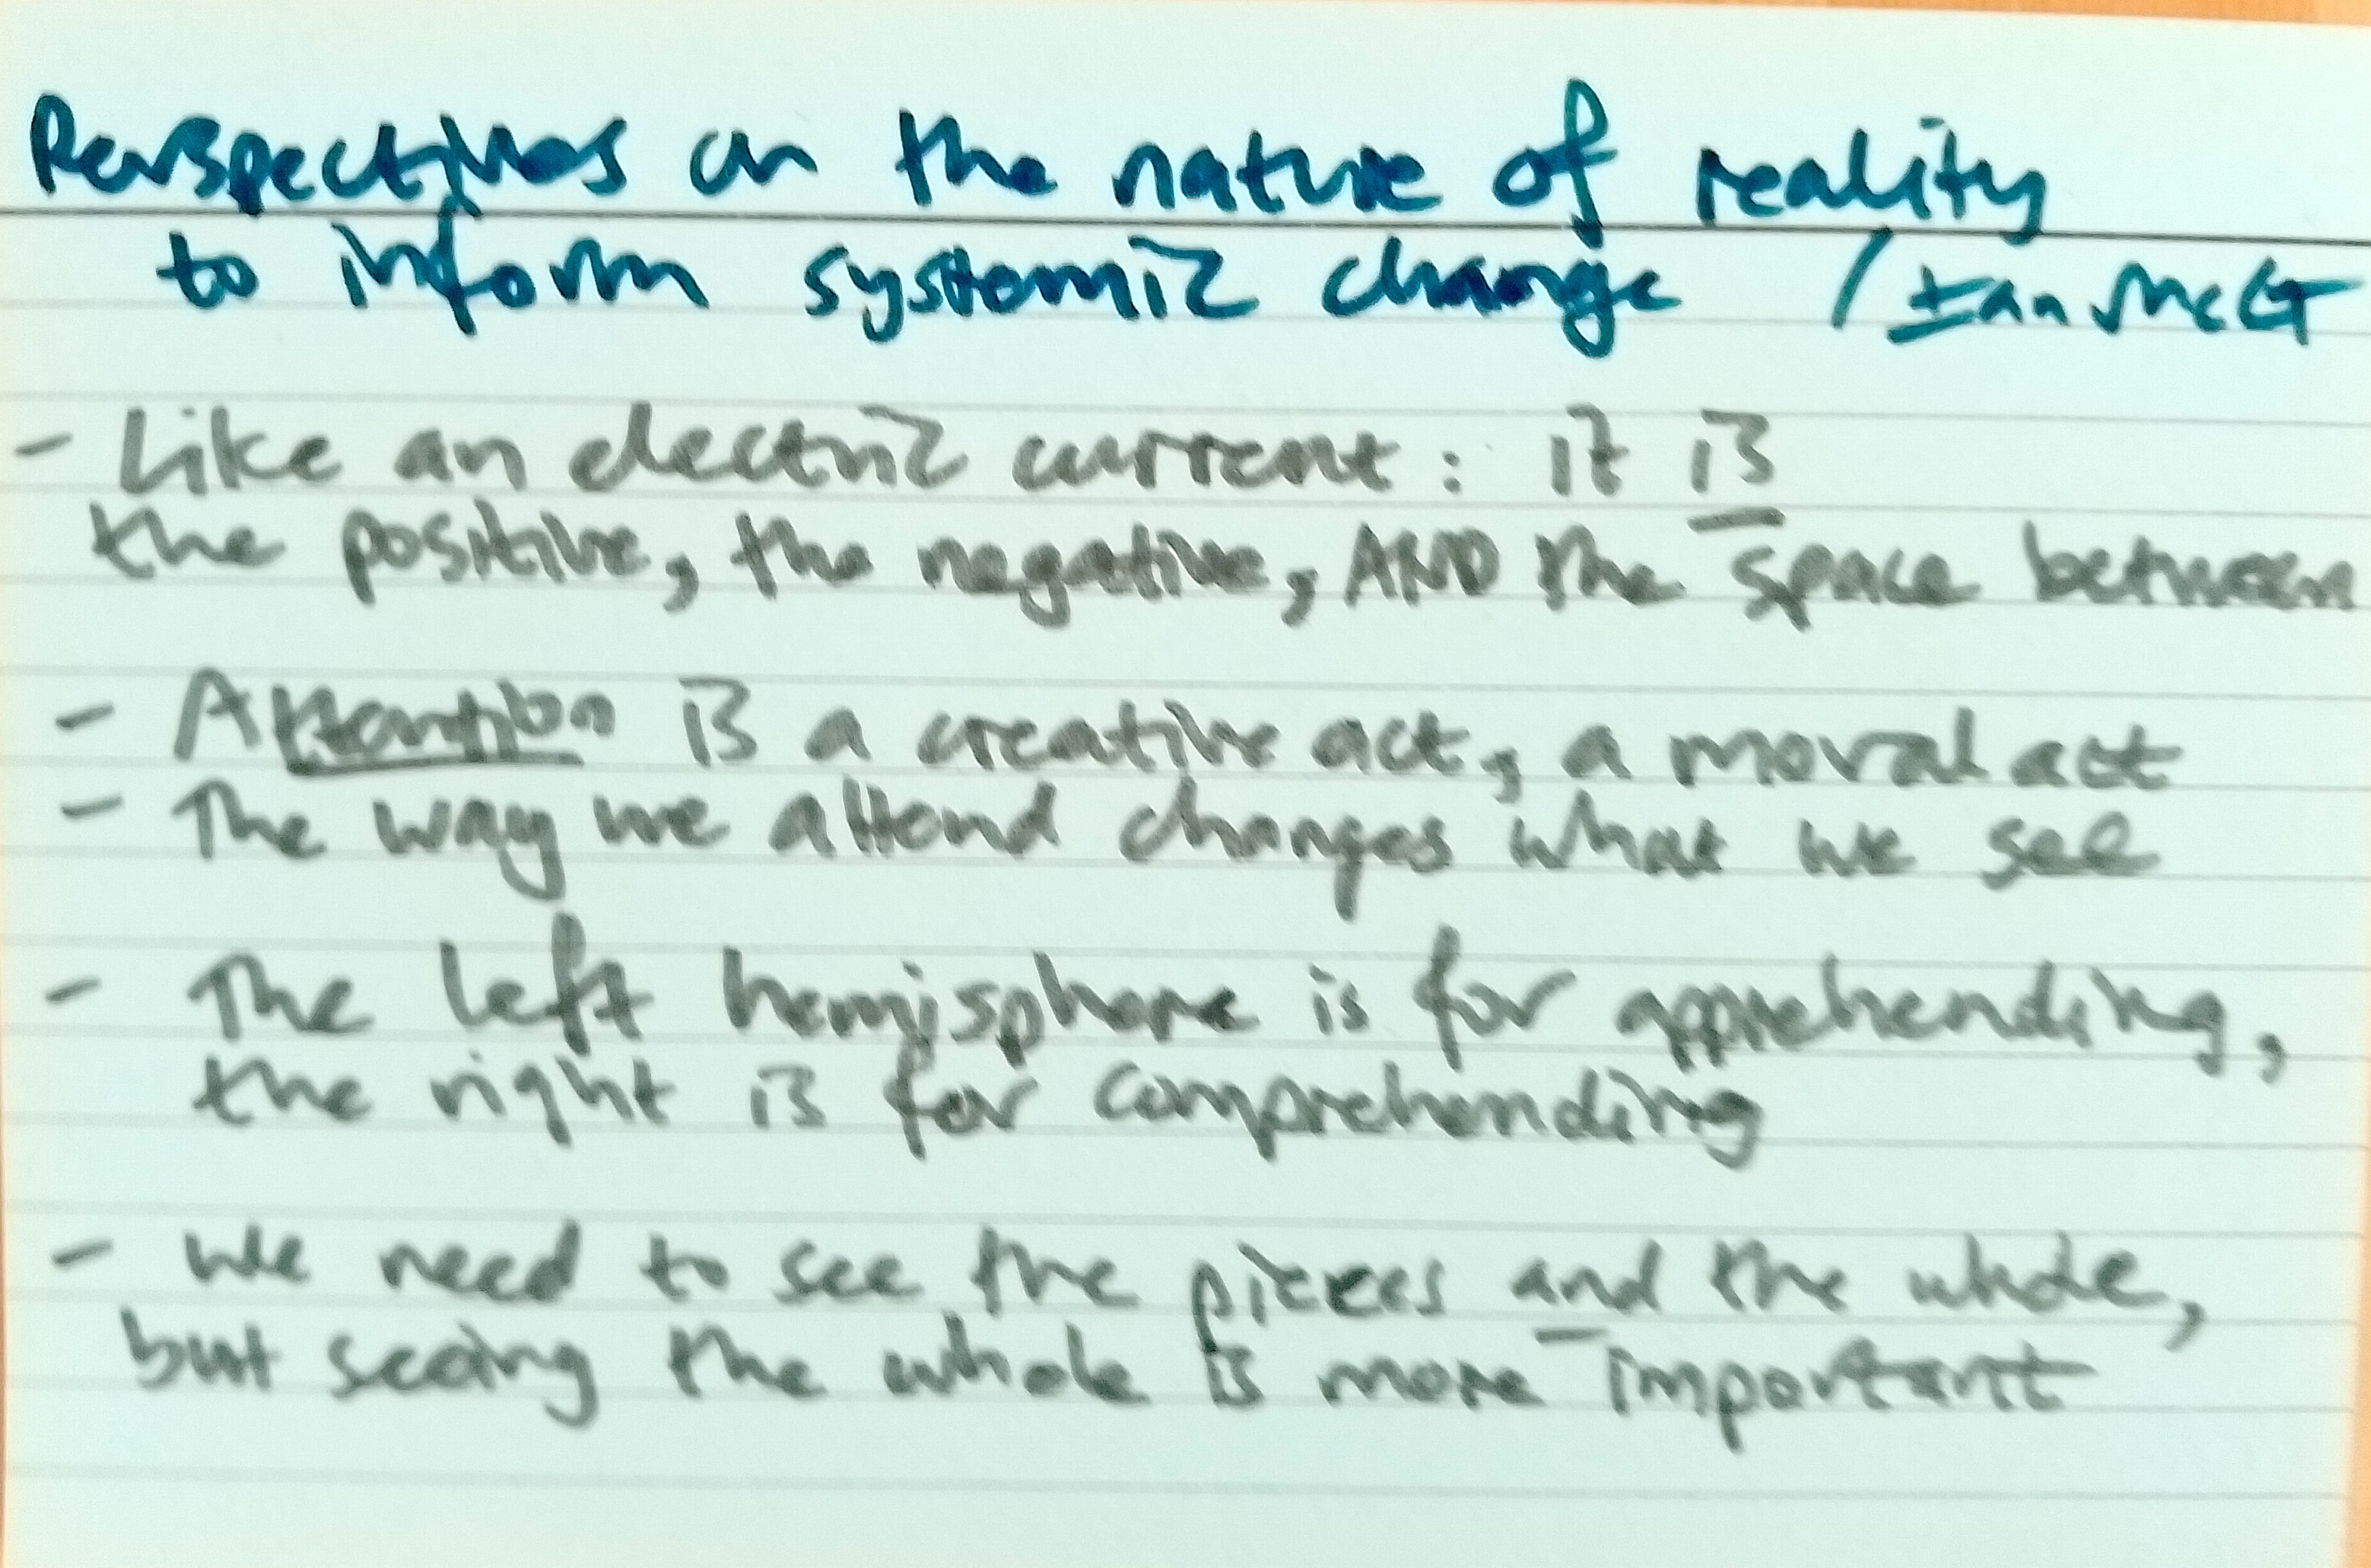 Perspectives on the nature of reality
to inform systemic change / Ian McG
- Like an electric current: it is
the positive, the negative, AND the space between
- Attention is a creative act, a moral act
- The way we attend changes what we see
- The left hemisphere is for apprehending,
the right is for comprehending
- We need to see the pieces and the whole,
but seeing the whole is more important